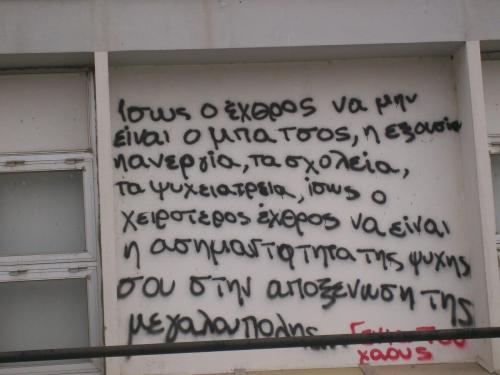 ίσως ο έχθρος να μην
είναι ο μπάτσος, η εξουσία
η ανεργία, τα σχολεία,
τα ψυχειατρεία, ίσως ο
χειρότερος έχθρος να είναι
η ασημαντότητα της ψυχης
σου στην αποξενωση της
μεγαλούπολης
Γενια του
χάους